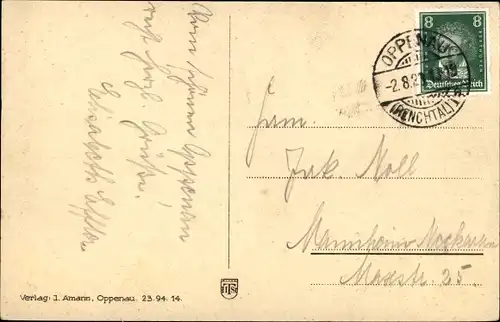 Vom schönen Oppenau
recht herzl. Grüße!
Elisabeth
8 8
Deutsches Reich
OPPENAU
-2.8.2
(RENCHTAL)
Fam.
Jak. Noll
Mannheim Neckarau
Maxstr. 25.
Verlag: J. Amann, Oppenau. 23.94.14.